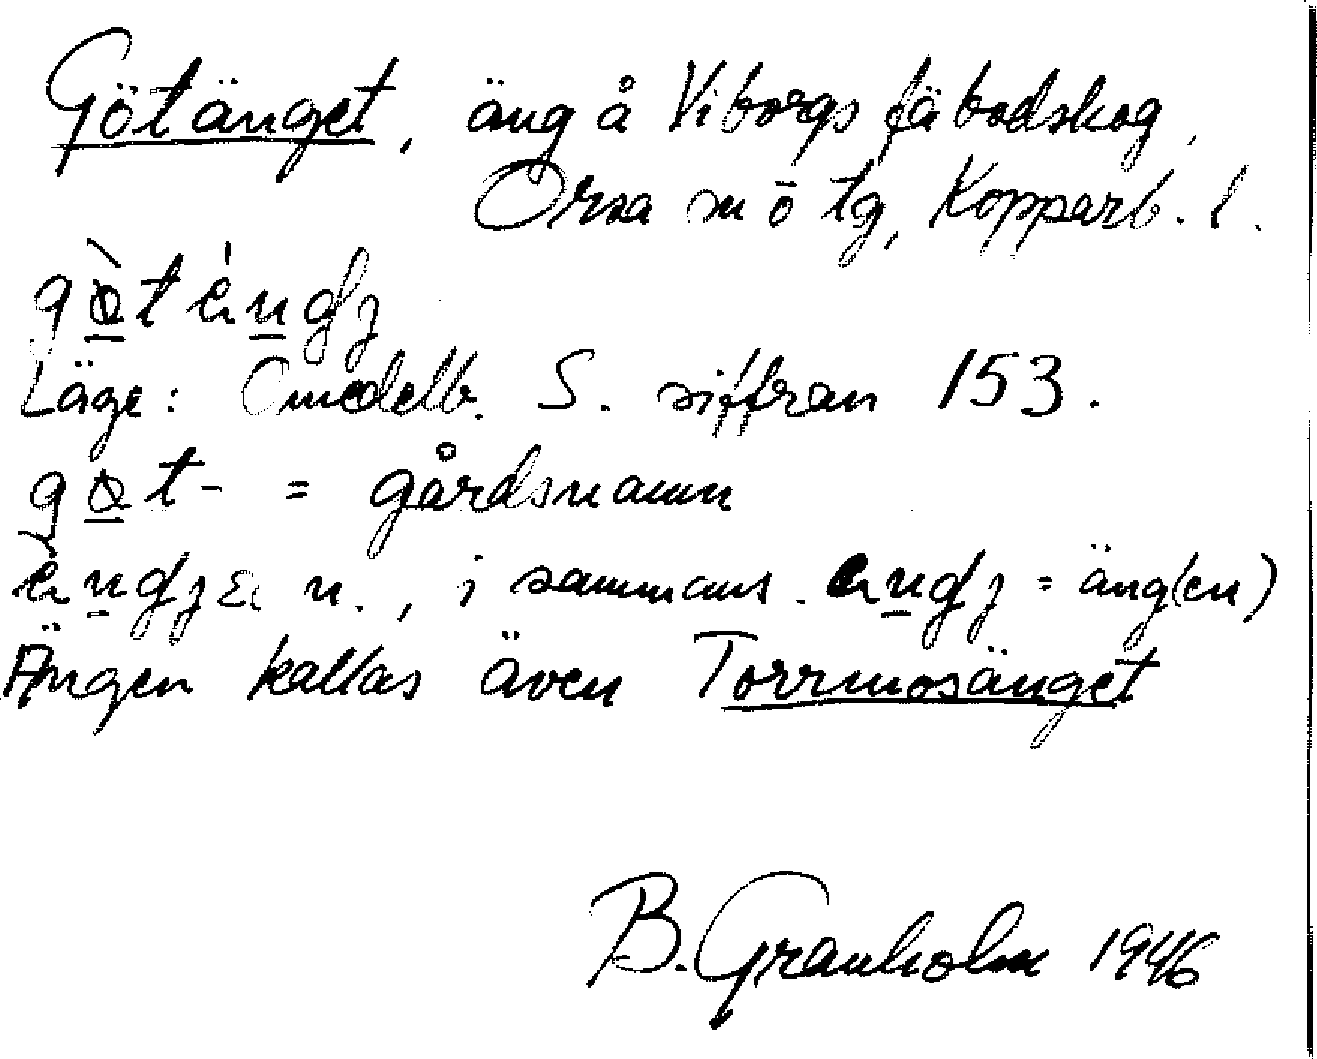 Götänget, äng å Viborgs fäbodskog,
Orsa sn ō tg, Kopparb. l.
Läge: Omedelb. S. siffran 153.
= gårdsnamn
n., i sammans. = äng(en)
Ängen kallas även Torrmosänget
B. Granholm 1946